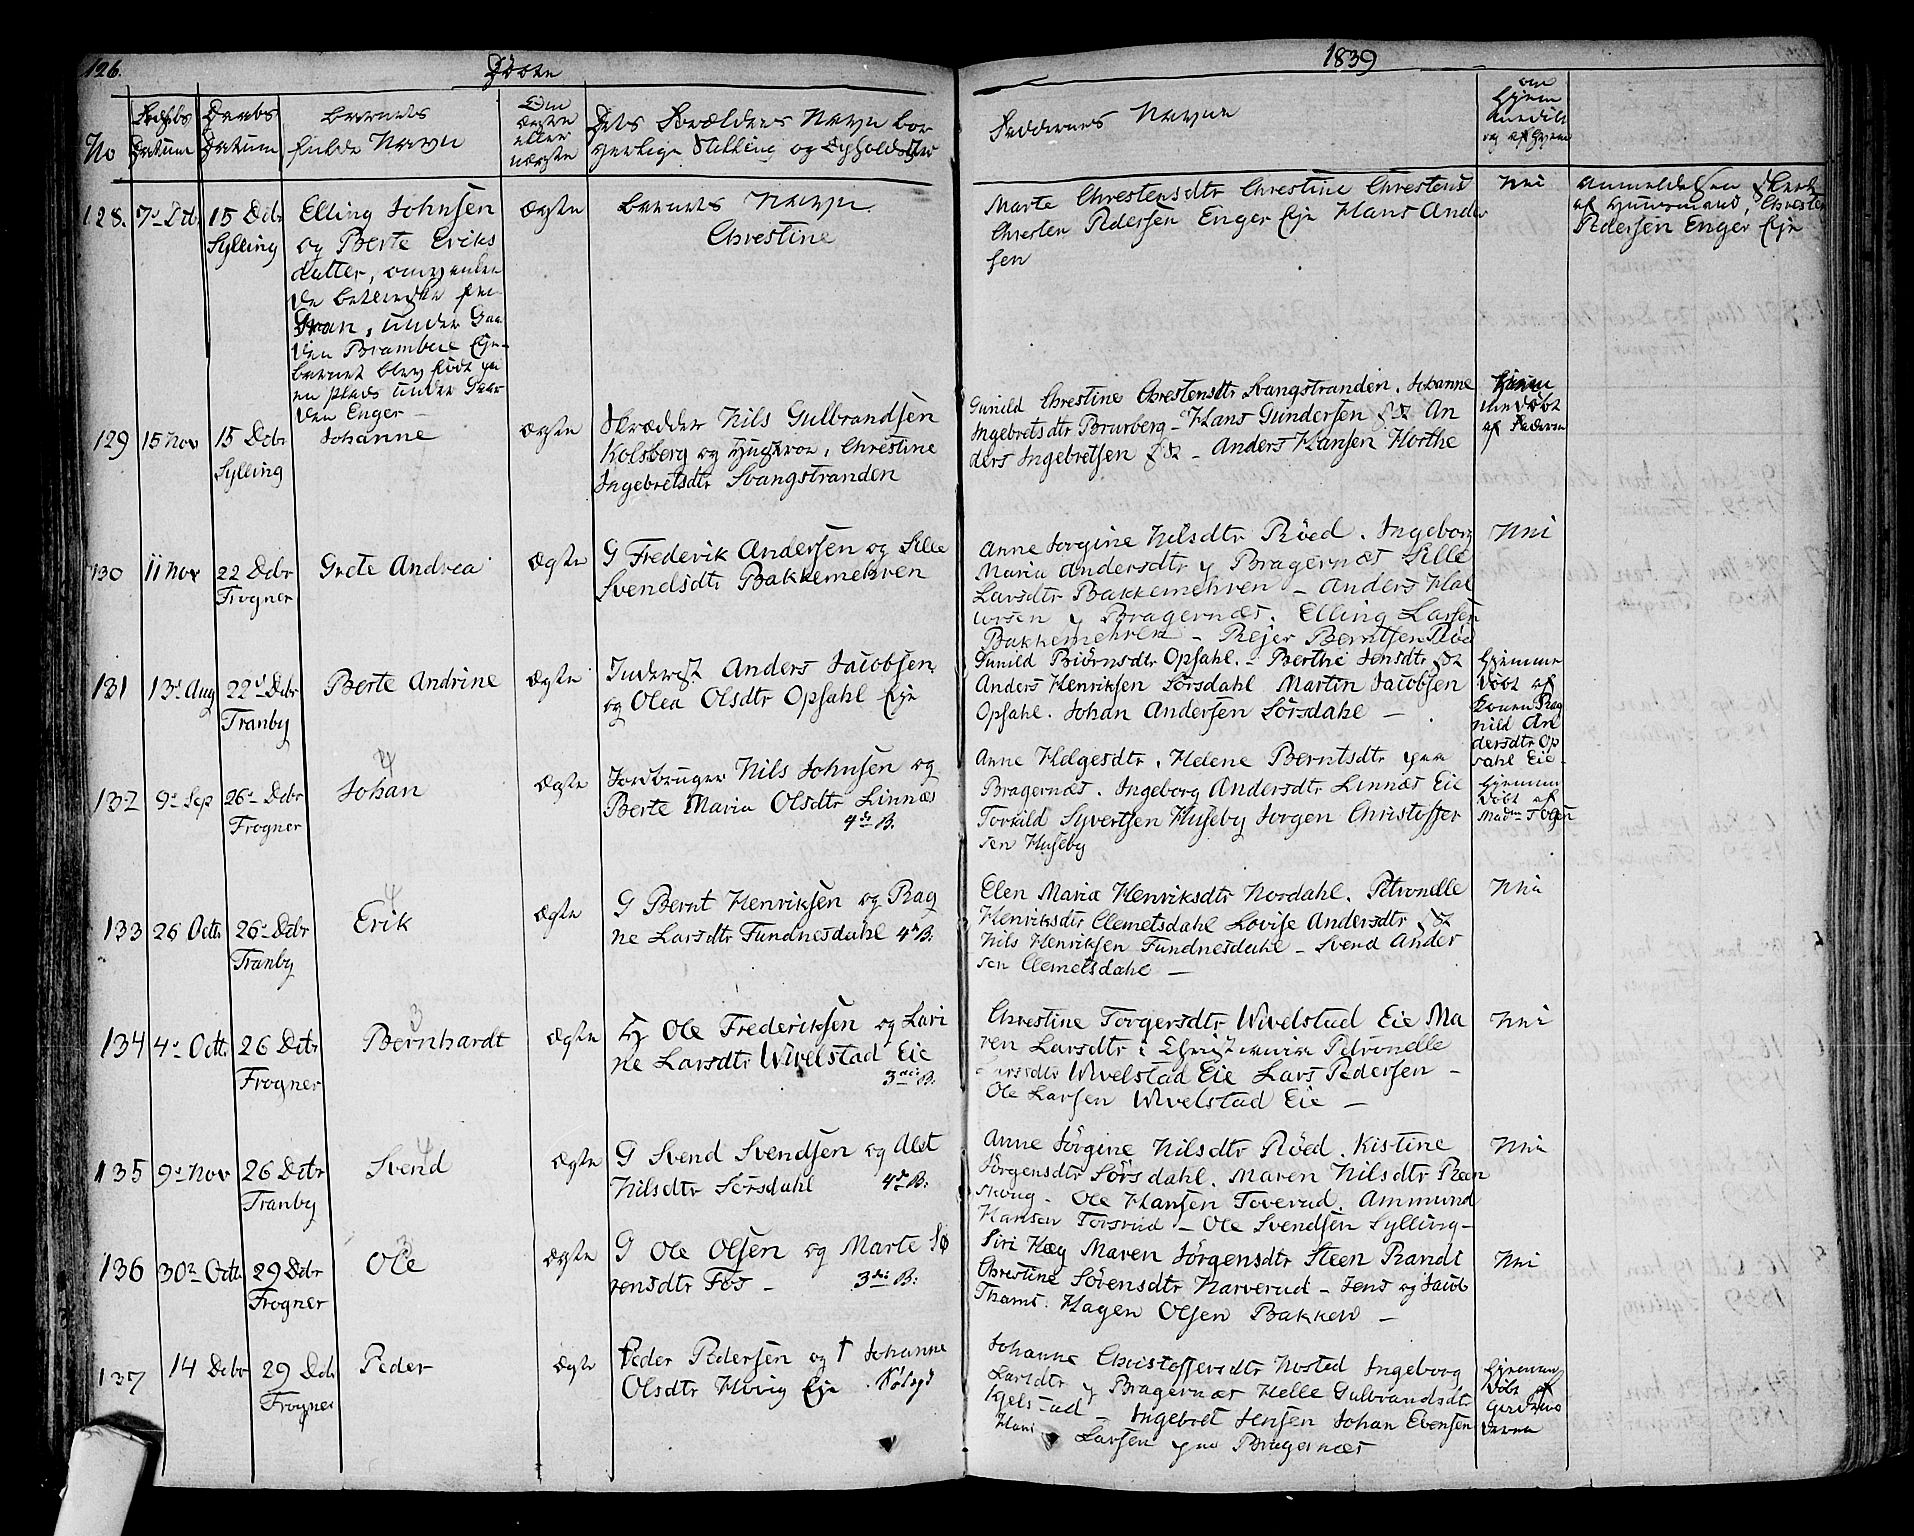 126. Døbte 1839
No
Fødsels Datum
Daabs Datum
Barnets fulde Navn
Om ægte eller uægte
Dets Forældres Navn bor
gerlige Stilling og Opholdsted
Faddernes Navne
om Hjem
og af hvem
128. 7de Dcbr 15 Dcbr Sylling
Elling Johnsen
og Berte Eriks
datter, omvanken
de betlende fra
Gran, under Gaa
den Brambere Eje
barnet blev født paa
en plads under Gaar
den Enger —
ægte
barnets Navn
Chrestine
Marte Chrestensdtr Chrestine Chrestens
Chresten Pedersen Enger Eje Hans Ander
sen
Nei
Anmeldelsen skeet
af Huusmand, Chresten
Pedersen Enger Eje
129 15 Nov 15 Dcbr Sylling
Johanne
ægte
Skrædder Nils Gulbrandsen
Kolsberg og Hustroe, Chrestine
Ingebretsdtr Svangstranden
Gunild Chrestine Chrestensdtr Svangstranden. Johanne
Ingebretsdtr Brurberg – Hans Gundersen sst An
ders Ingebretsen sst – Anders Hansen Horthe
Hjem
medøbt
af Faderen
130 11 Nov 22 Dcbr Frogner
Grete Andrea
Ægte
G Frederik Andersen og Sille
Svendsdtr Bakkemehren
Anne Jorgine Nilsdtr Röed. Ingeborg
Maria Andersdtr p Bragernæs Sille
Larsdtr Bakkemehren – Anders Hal
vorsen p Bragernæs. Elling Larsen
Bakkemehren – Rejer Berntsen Röe
Nei
131 13de Aug 22de Dcbr Tranby
Berte Andrine
Ægte
Inderest Anders Jacobsen
og Olea Olsdtr Opsahl Eje
Gunild Biörnsdtr Opsahl. – Berthe Jensdtr sst
Anders Henriksen Sörsdahl Martin Jacobsen
Opsahl. Johan Andersen Sörsdahl —
Hjemme
døbt af
Konen Rag
nild An
dersdtr Op
sahl Eie
132 9de Sep 26de Dcbr Frogner
4
Johan
ægte
Jordbruger Nils Johnsen og
Berte Maria Olsdtr Linnæs
4de B.
Anne Helgesdtr. Helene Berntsdtr paa
Bragernæs. Ingeborg Andersdtr Linnæs Eie
Torkild Syvertsen Huseby Jorgen Christoffer
sen Huseby
Hjemme
døbt af
133 26 Octr 26de Dcbr Tranby
4
Erik
ægte
G Bernt Henriksen og Rag
ne Larsdtr Fundnesdahl 4de B.
Elen Maria Henriksdtr Nordahl. Petronelle
Henriksdtr Clemetsdahl Lovise Andersdtr sst
Nils Henriksen Fundnesdahl – Svend Ander
sen Clemetsdahl —
Nei
134 4de Octr 26 Dcbr Frogner
3
Bernhardt
ægte
Ole Frederiksen og Lari
ne Larsdtr Wivelstad Eie
3die B.
Chrestine Torgersdtr Wivelstad Eie Ma
ren Larsdtr i Christiania Petronelle
Larsdtr Wivelstad Eie Lars Pedersen –
Ole Larsen Wivelstad Eie —
Nei
135 9de Nov 26 Dcbr Tranby
4
Svend
Ægte
G Svend Svendsen og Alet
Nilsdtr Sörsdahl 4de B.
Anne Jörgine Nilsdtr Röed. Kistine
Jörgensdtr Sörsdahl. Maren Nilsdtr Reen
skoug – Ole Hansen Toverud. Ammund
Hansen Torsrud – Ole Svendsen Sylling –
Nei
136 30te Octr 29 Dcbr Frogner
3
Ole
ægte
G Ole Olsen og Marte Sö
rensdtr Fos – 3die B:
Siri Hæg Maren Jörgensdtr Steen Randi
Chrestine Sörensdtr Narverud – Jens og Jacob
Thams. Hagen Olsen Bakken —
Nei
137 14 Dcbr 29 Dcbr Frogner
Peder
ægte
Peder Pedersen og † Johanne
Olsdtr Hovig Eje
Johanne Christoffersdtr Nosted Ingeborg
Larsdtr p Bragernæs Helle Gulbrandsdtr
Kjelstad – Ingebret Jensen Johan Evensen
Hans Larsen paa Bragernæs
Hjemme
døbt af